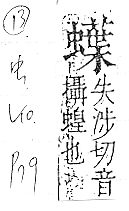 ⑬
虫
40
P79
蠂失涉切音
攝蝗也